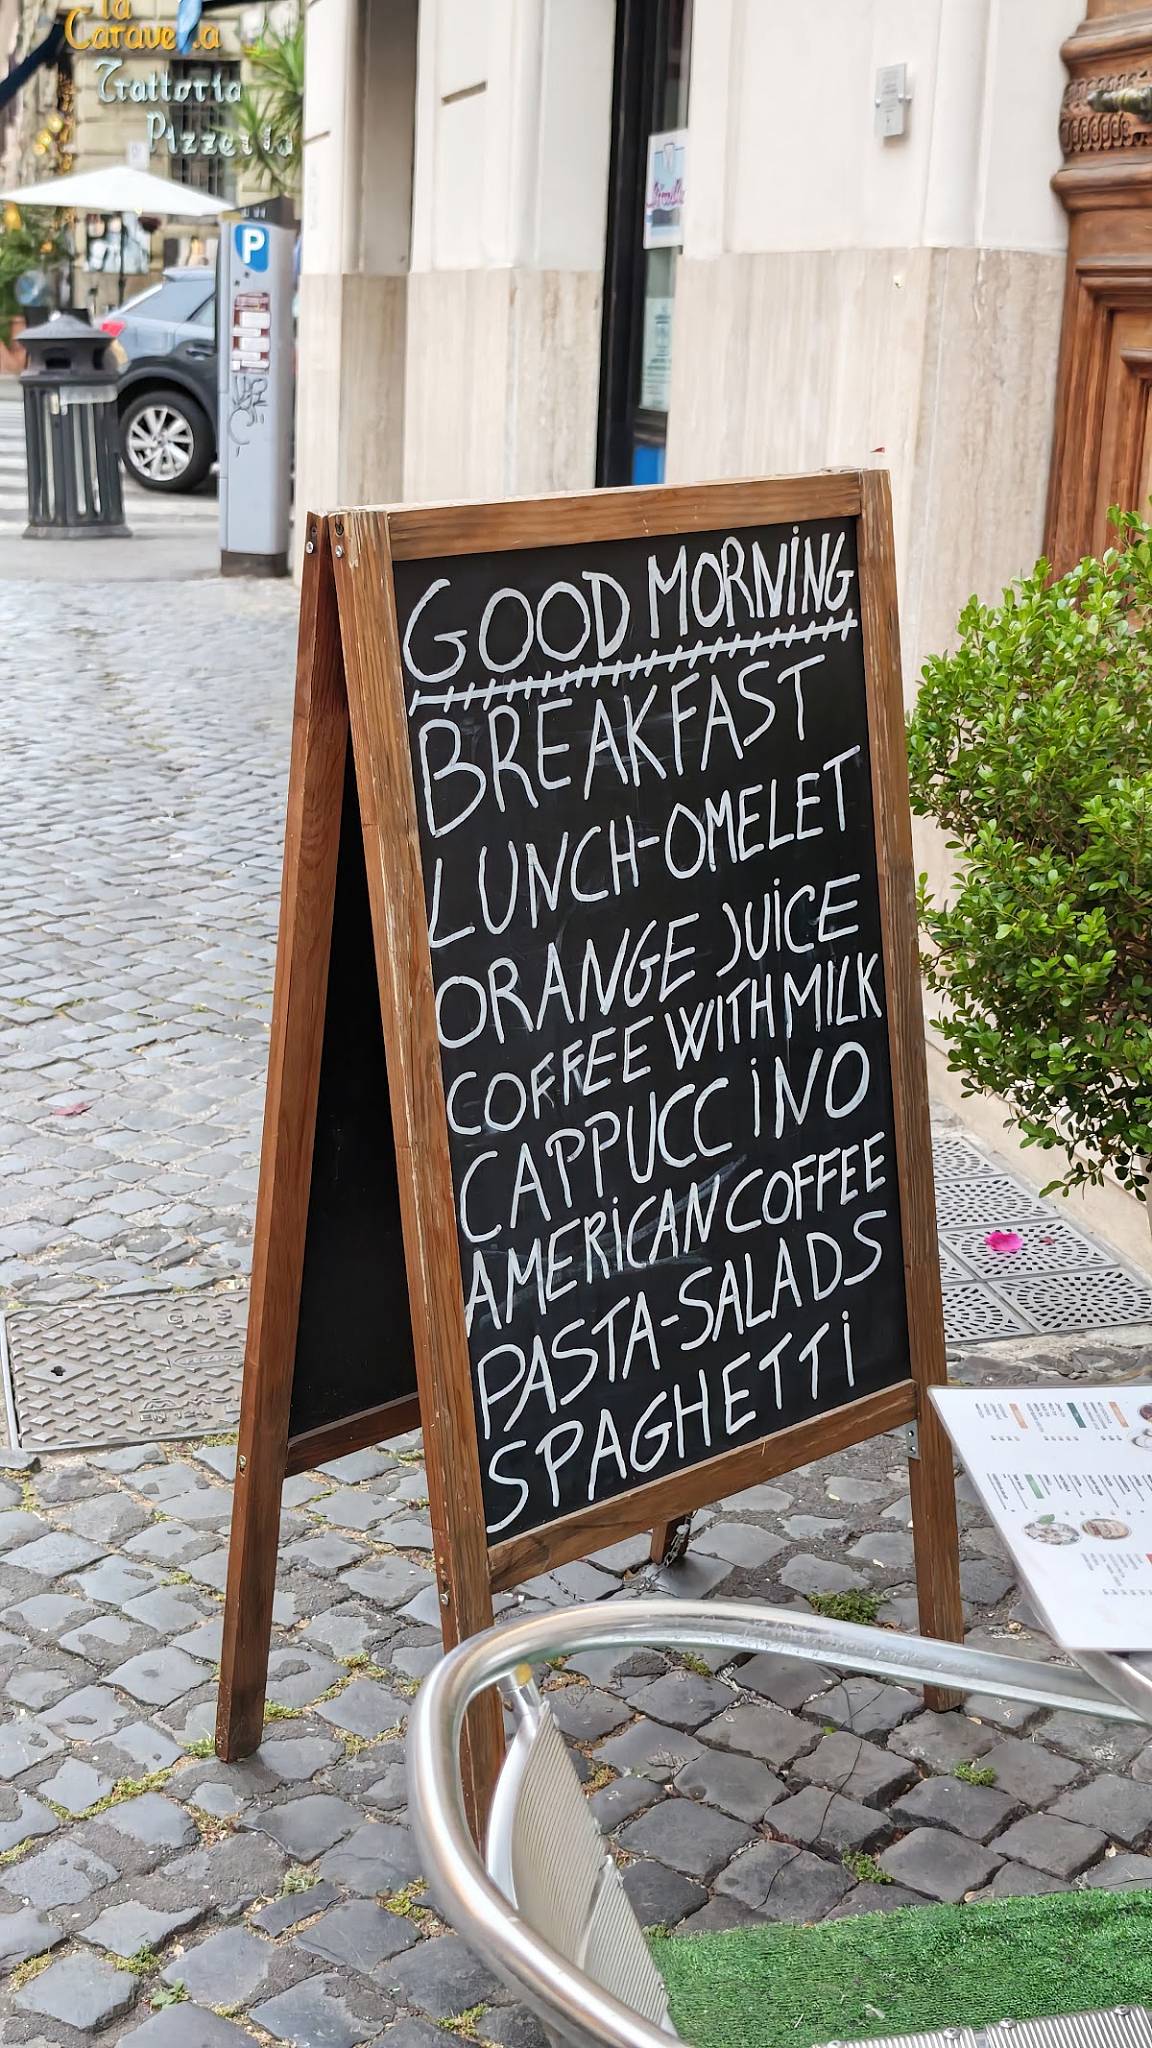 la
Caravella
Trattoria
Pizzeria
P
GOOD MORNING
BREAKFAST
LUNCH-OMELET
ORANGE JUICE
COFFEE WITH MILK
CAPPUCCINO
AMERICAN COFFEE
PASTA-SALADS
SPAGHETTI
GAS